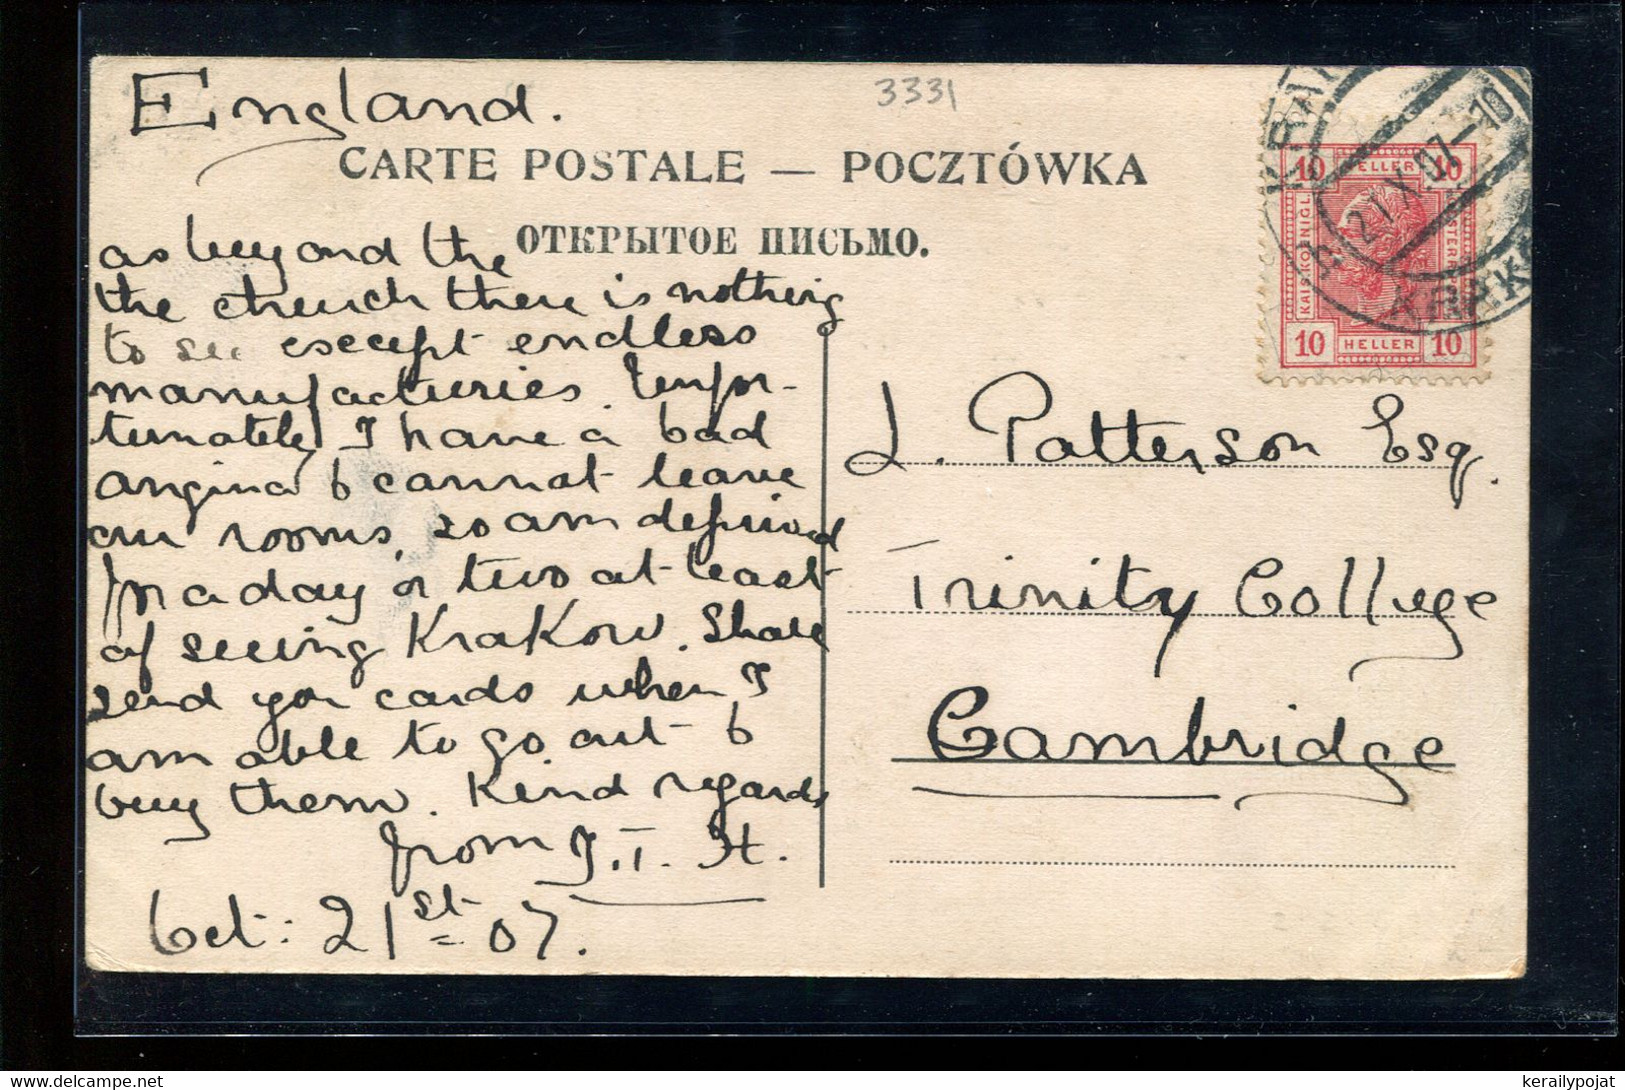 England.
3331
CARTE POSTALE — POCZTÓWKA
ОТКРЫТОЕ ПИСЬМО.
as beyond the
the church there is nothing
to see except endless
manufacturies. Unfor-
tunately I have a bad
angina & cannot leave
our rooms, so am deprived
for a day or two at least
of seeing Krakow. Shall
send you cards when I
am able to go out &
buy them. Kind regards
from J.T. H.
Oct: 21st 07.
10 HELLER 10
KAIS KÖNIGL
10 HELLER 10
21 X 07-10
J. Patterson Esq.
Trinity College
Cambridge
kerailypojat@kerailypojat.com